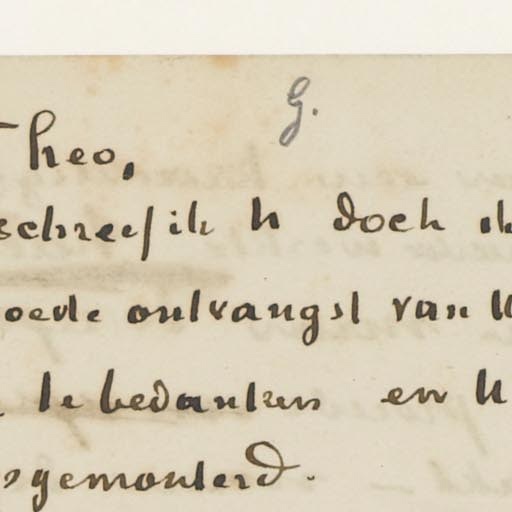 G.
Theo,
schreef ik U doch ik
goede ontvangst van U
te bedanken en U
sgemonterd.